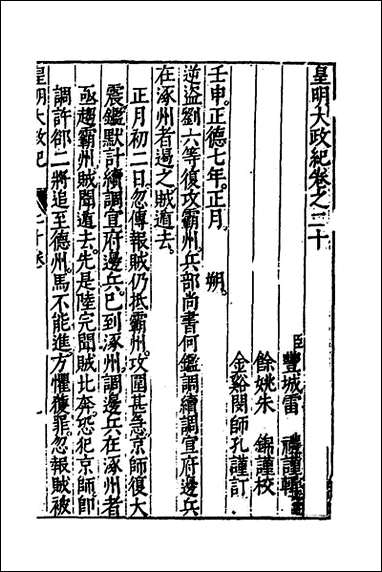 皇明大政紀卷之二十
臣豐城雷 禮謹輯
餘姚朱 錦謹校
金谿閔師孔謹訂
壬申。正德七年。正月。 朔。
逆盜劉六等復攻霸州。兵部尚書何鑑調續調宣府邊兵
在涿州者遏之。賊遁去。
正月初二日忽傳報賊仍抵霸州。攻圍甚急。京師復大
震。鑑默計續調宣府邊兵。已到涿州。調邊兵在涿州者
亟趨霸州。賊聞遁去。先是陸完聞賊北奔。恐犯京師。即
調許郤二將追至德州。馬不能進。方懼獲罪。忽報賊被
皇明大政紀 二十卷